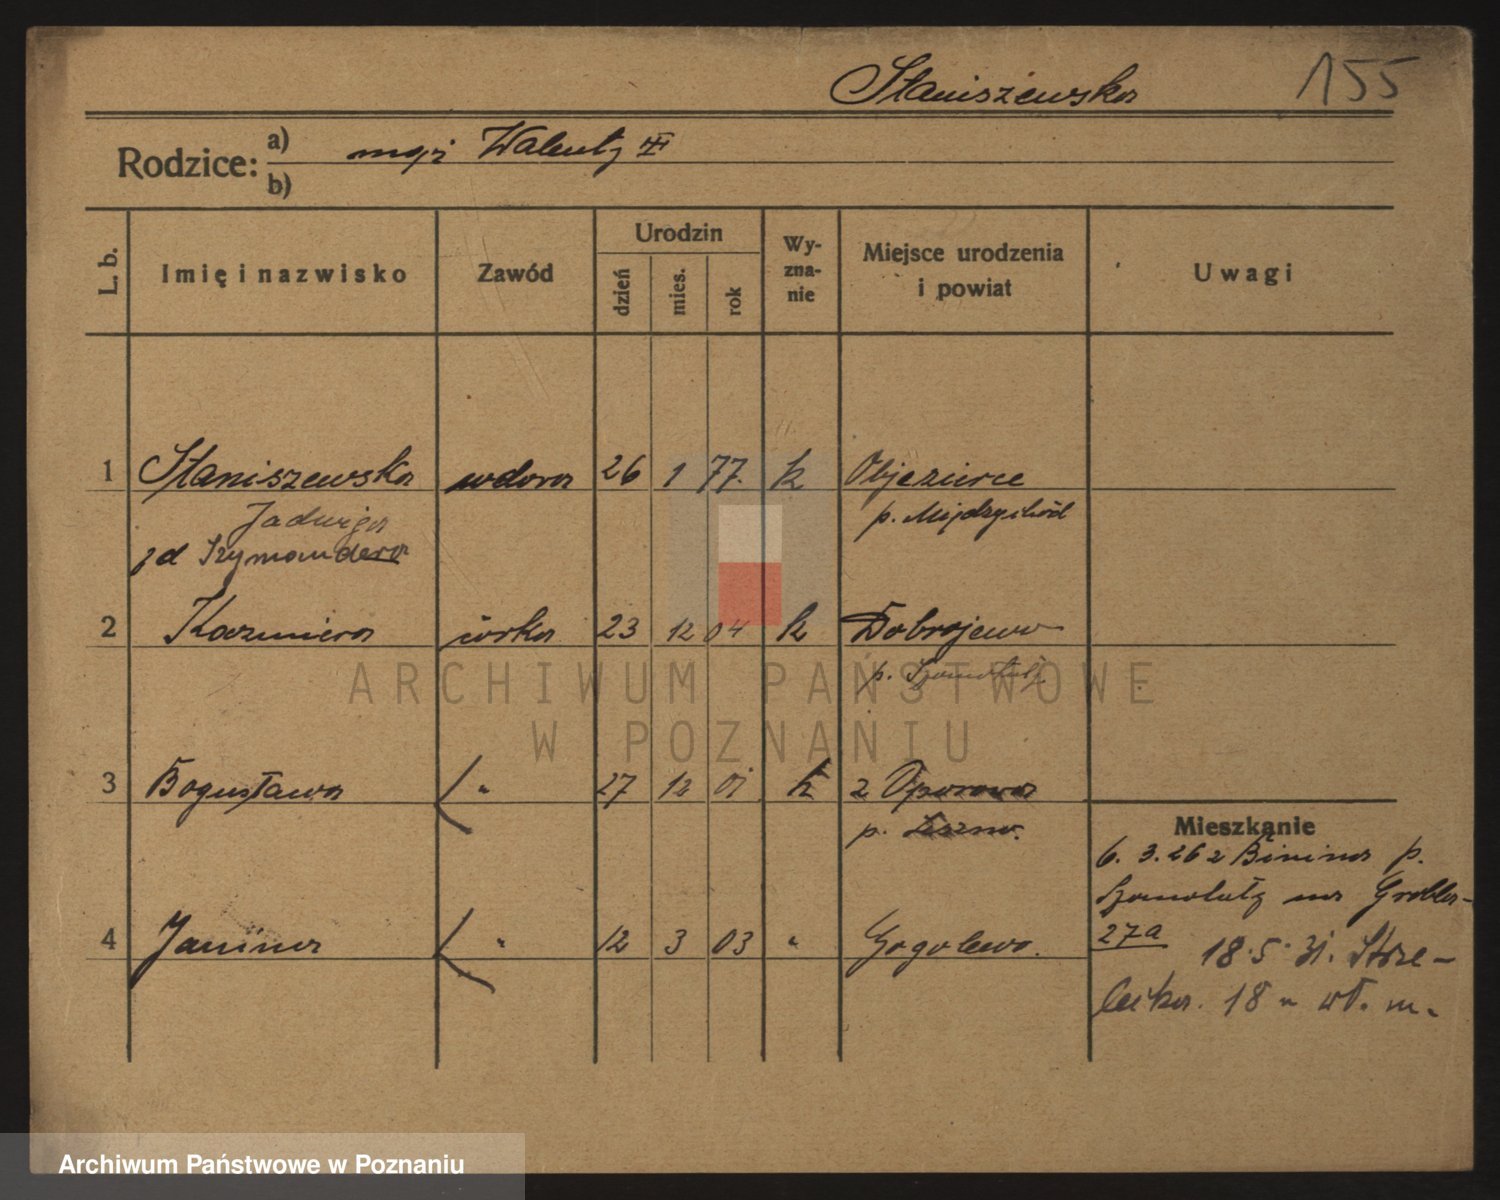 Staniszewska 155
Rodzice: a) mąż Walenty
b)
L. b. Imię i nazwisko Zawód Urodzin dzień mies. rok Wyznanie Miejsce urodzenia i powiat Uwagi
1 Staniszewska wdowa 26 1 77. k Objezierze
Jadwiga p. Międzychód
zd Szymandera
2 Kazimiera córka 23 12 04 k Dobrojewo
p. Szamotuły
3 Bogusława " 27 12 01 k z Oporowa
p. Leszno.
Mieszkanie
6. 3. 26 z Binina p.
Szamotuły na Grobla
4 Janina " 12 3 03 " Gogolewo. 27a
18.5.31. Strze-
lecka. 18 n wł. m.
ARCHIWUM PAŃSTWOWE
W POZNANIU
Archiwum Państwowe w Poznaniu